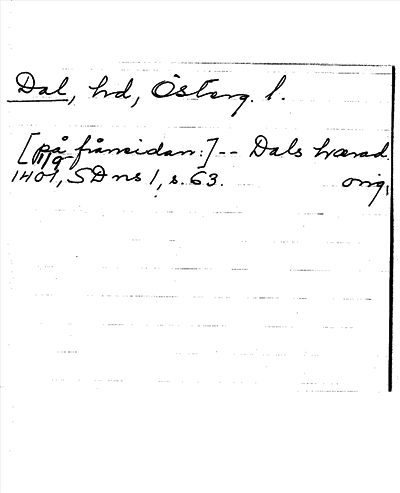 Dal, hd, Österg. l.
[på frånsidan:] -- Dals hærad.
11/9
1401, SD ns 1, s. 63. orig.